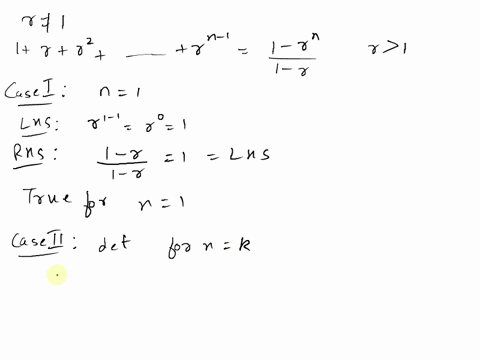 r ≠ 1
1 + r + r² + ____ + r^(n-1) = (1 - r^n)/(1 - r)    r > 1
Case I : n = 1
LHS : r^(1-1) = r^0 = 1
RHS : (1 - r)/(1 - r) = 1 = LHS
True for n = 1
Case II : det for n = k